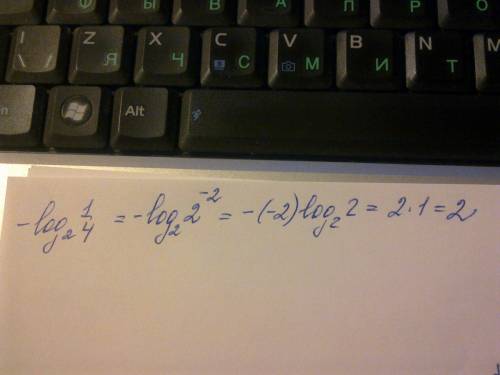 Ф Ы В А П Р О
I \ / Z Я X Ч C С V М B И N Т M
Alt
-log₂ 1/4 = -log₂ 2⁻² = -(-2) log₂ 2 = 2 · 1 = 2